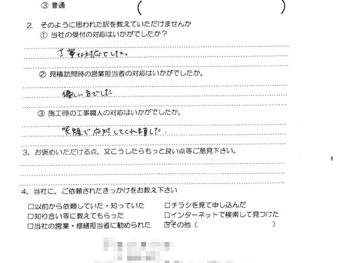 ③ 普通
( )
2. そのように思われた訳を教えていただけませんか
① 当社の受付の対応はいかがでしたか？
丁寧な対応でした。
② 見積訪問時の営業担当者の対応はいかがでしたか。
優しい方でした
③ 施工時の工事職人の対応はいかがでしたか？
笑顔で応対してくれました。
3、お褒めいただける点、又こうしたらもっと良い点等ご意見下さい。
4、当社に、ご依頼されたきっかけをお教え下さい
□以前から依頼していた・知っていた □チラシを見て申し込んだ
□知り合い等に教えてもらった □インターネットで検索して見つけた
□当社の営業・修繕担当者に勧められた ☑その他（ ）